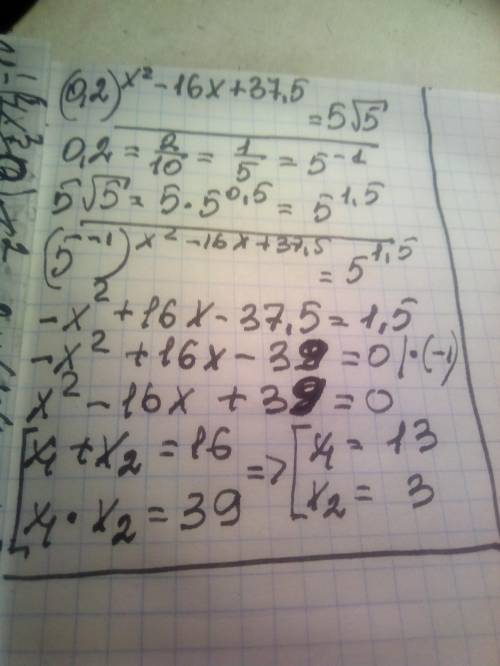 (0,2)^x²-16x+37,5 = 5√5
0,2 = 2/10 = 1/5 = 5^-1
5√5 = 5·5^0,5 = 5^1,5
(5^-1)^x²-16x+37,5 = 5^1,5
-x²+16x-37,5=1,5
-x²+16x-39=0|·(-1)
x²-16x+39=0
[x₁+x₂=16 => [x₁=13
x₁·x₂=39 x₂=3